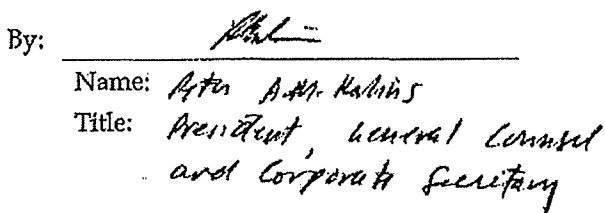 By:
Name: Peter A.M. Kalins
Title: President, General Counsel
and Corporate Secretary